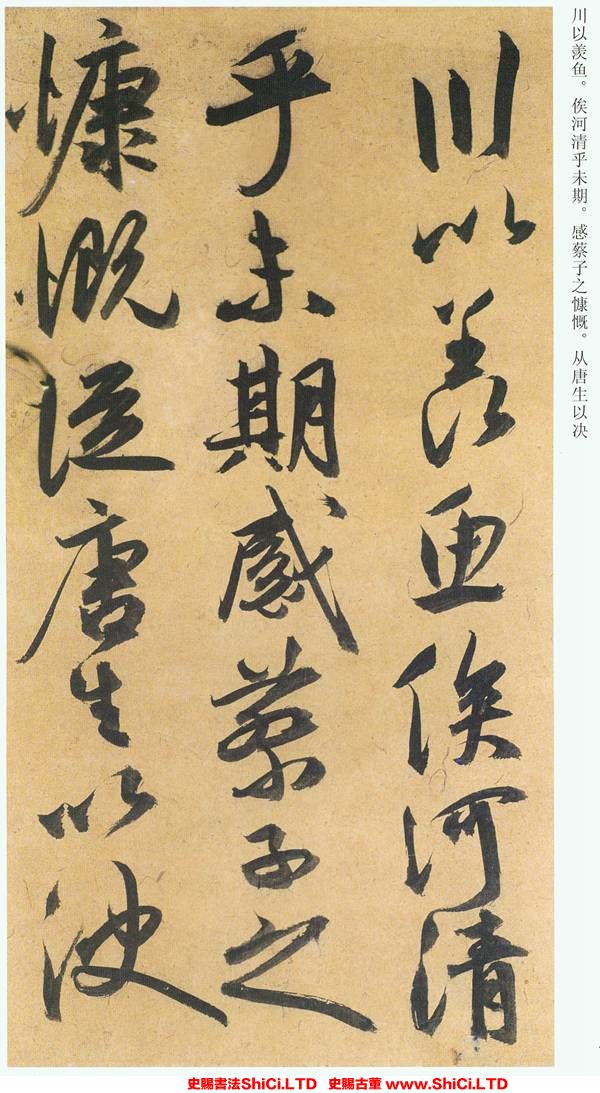 川以羨魚俟河清
乎未期感蔡子之
慷慨從唐生以決
川以羡鱼。俟河清乎未期。感蔡子之慷慨。从唐生以决
史賜書法ShiCi.LTD 史賜古董 www.ShiCi.LTD